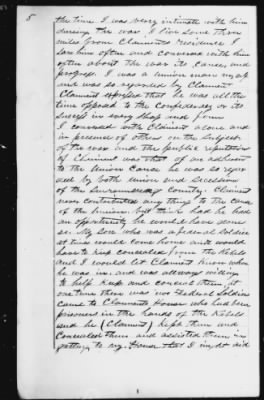 5
the time I was very intimate with him
during the war. I live some three
miles from Claimants residence I
saw him often and conversed with him
often about the war its causes and
progress. I was a union man myself
and was so regarded by Claimant
Claimant expressed that he was all the
time opposed to the Confederacy or its
success in every shape and form
I conversed with Claimant alone and
in presence of others on the subject
of the war and the public reputation
of Claimant was that of an adherent
to the Union Cause he was so regar
ded by both Union and Secession
of the Surrounding Country. Claimant
never contributed any thing to the cause
of the Union but this had he had
an opportunity he would have done
so. My Son who was a federal Soldier
at times would come home and would
have to keep concealed from the Rebels
and I would let Claimant know when
he was in. and was allways willing
to help keep and conceal them, at
one time there was two Federal Soldiers
came to Claimants House who had been
prisoners in the hands of the Rebels
and he (Claimant) kept them and
Concealed them and assisted them in
getting to my House that I might aid